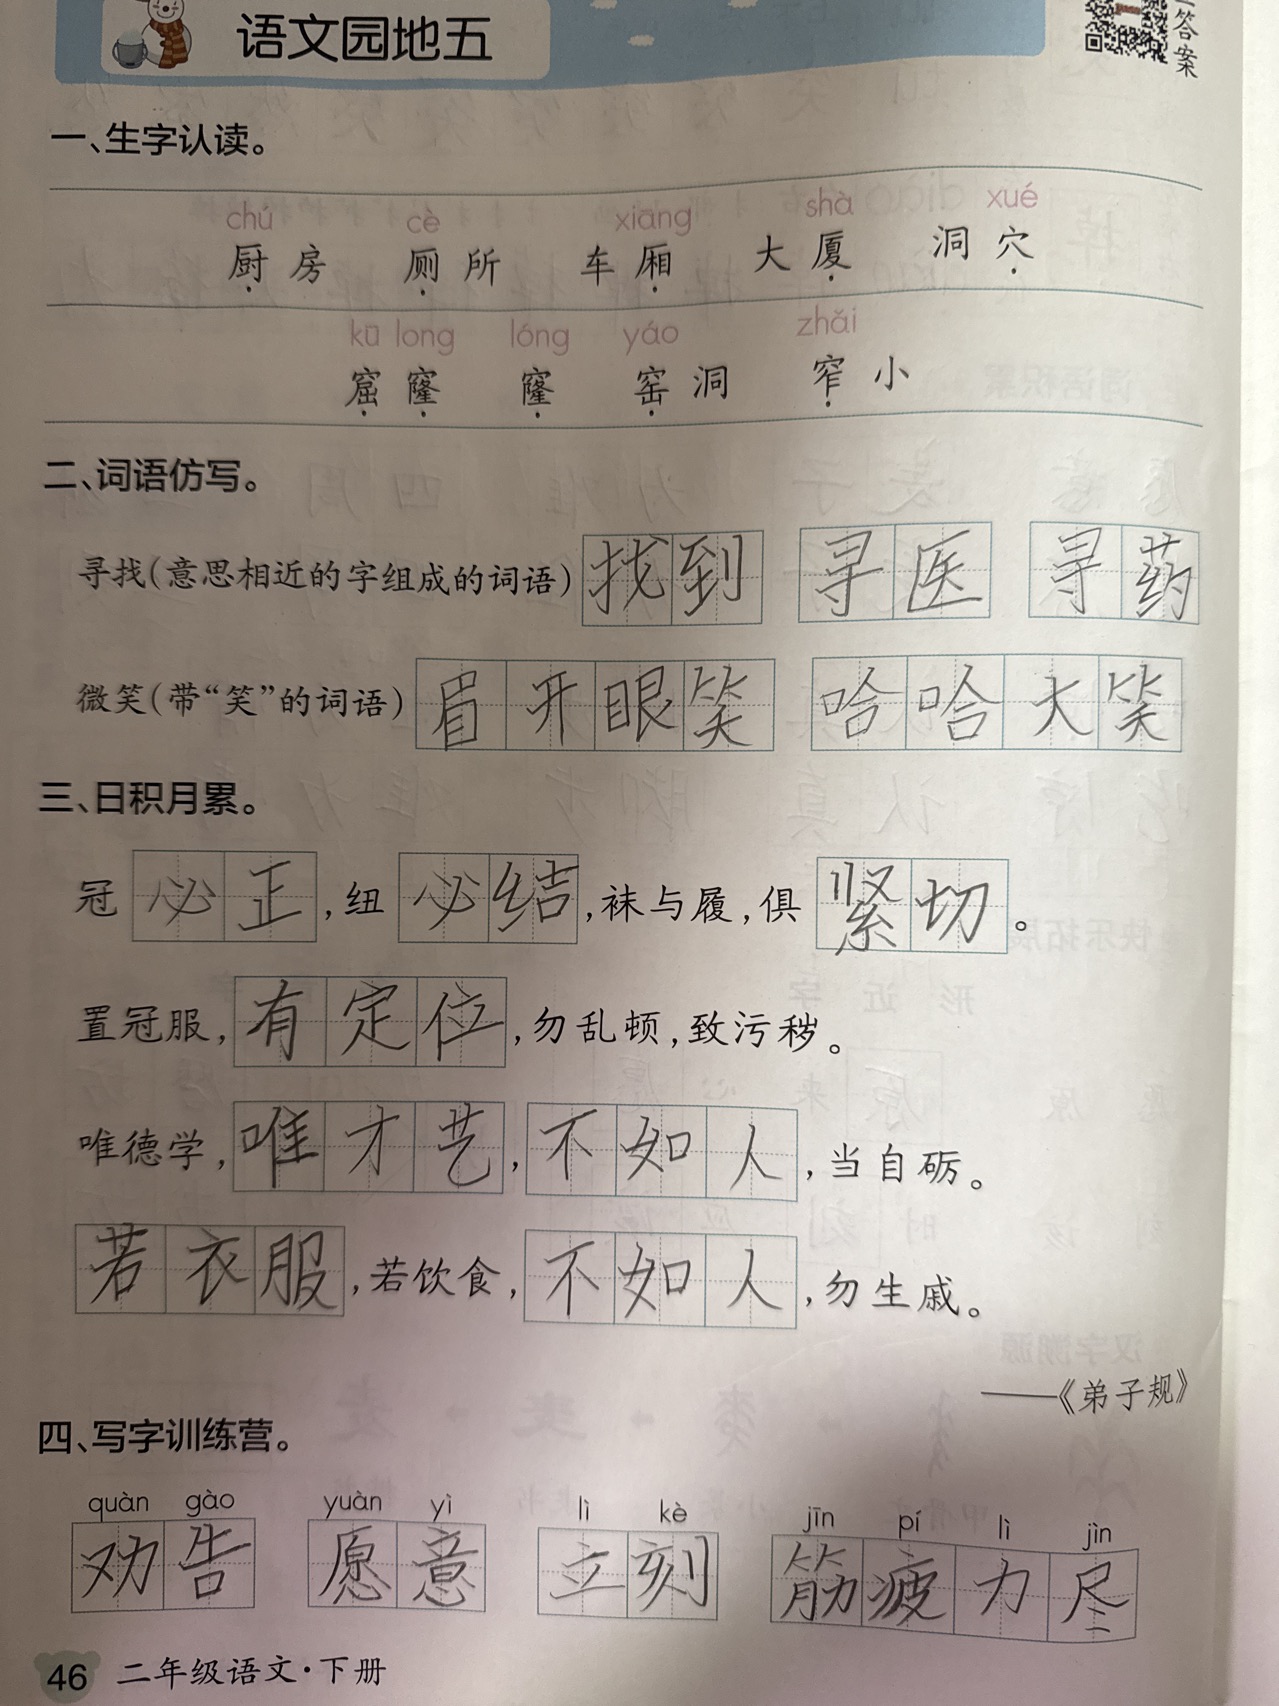 语文园地五
答案
一、生字认读。
chú cè xiāng shà xué
厨房 厕所 车厢 大厦 洞穴
kū long lóng yáo zhǎi
窟窿 窿 窑洞 窄小
二、词语仿写。
寻找(意思相近的字组成的词语) 找到 寻医 寻药
微笑(带“笑”的词语) 眉开眼笑 哈哈大笑
三、日积月累。
冠必正,纽必结,袜与履,俱紧切。
置冠服,有定位,勿乱顿,致污秽。
唯德学,唯才艺,不如人,当自砺。
若衣服,若饮食,不如人,勿生戚。
——《弟子规》
四、写字训练营。
quàn gào yuàn yì lì kè jīn pí lì jìn
劝告 愿意 立刻 筋疲力尽
46 二年级语文·下册